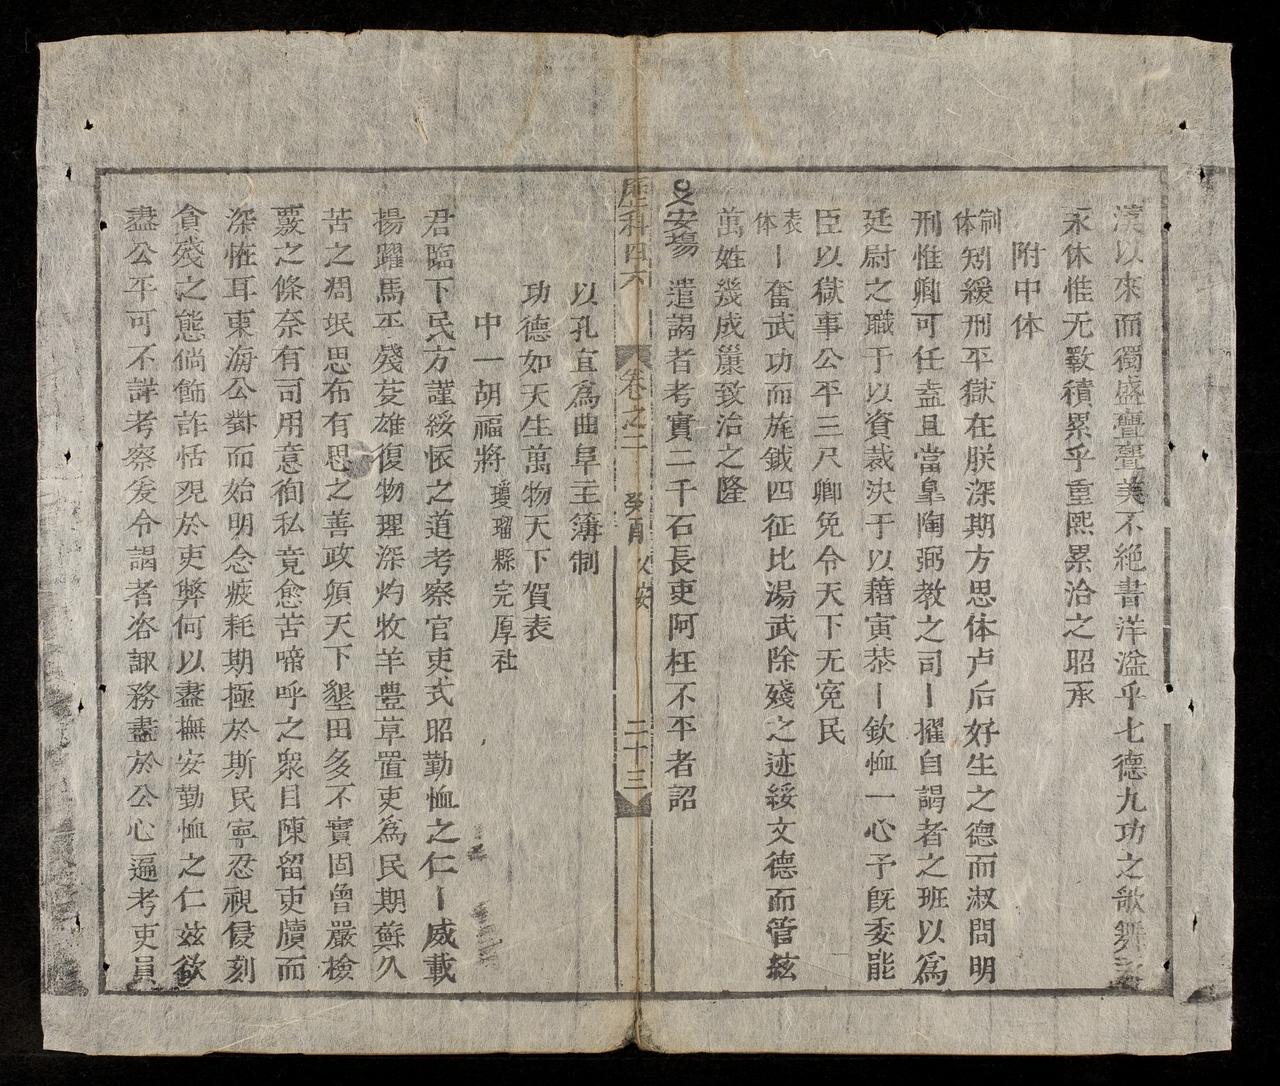 漢以來而獨盛亹亹美不絶書洋溢乎七德九功之歌舞永
永休惟无斁積累乎重熙累洽之昭承
附中体
制体矧緩刑平獄在朕深期方思体卢后好生之德而淑問明
刑惟卿可任盍且當皇陶弼教之司〡擢自謁者之班以爲
廷尉之職于以資裁決于以藉寅恭〡欽恤一心予既委能
臣以獄事公平三尺卿免令天下无寃民
表体〡奮武功而旄鉞四征比湯武除殘之迹綏文德而管絃
萬姓幾成巢致治之隆
乂安塲 遣謁者考實二千石長吏阿枉不平者詔
歷科四六 卷之二 癸酉 乂安 二十三
以孔宜爲曲阜主簿制
功德如天生萬物天下賀表
中一胡福將 瓊瑠縣完厚社
君臨下民方謹綏懷之道考察官吏式昭勤恤之仁〡威載
揚躍馬丕殘芟雄復物理深灼牧羊豊草置吏爲民期蘇久
苦之凋氓思布有思之善政頃天下墾田多不實固曾嚴檢
覈之條奈有司用意徇私竟愈苦啼呼之衆目陳留吏牘而
深恠耳東海公對而始明念疲耗期極於斯民寧忍視侵刻
貪殘之態倘飾詐恬覌於吏弊何以盡撫安勤恤之仁兹欲
盡公平可不詳考察爰令謁者咨諏務盡於公心遍考吏員